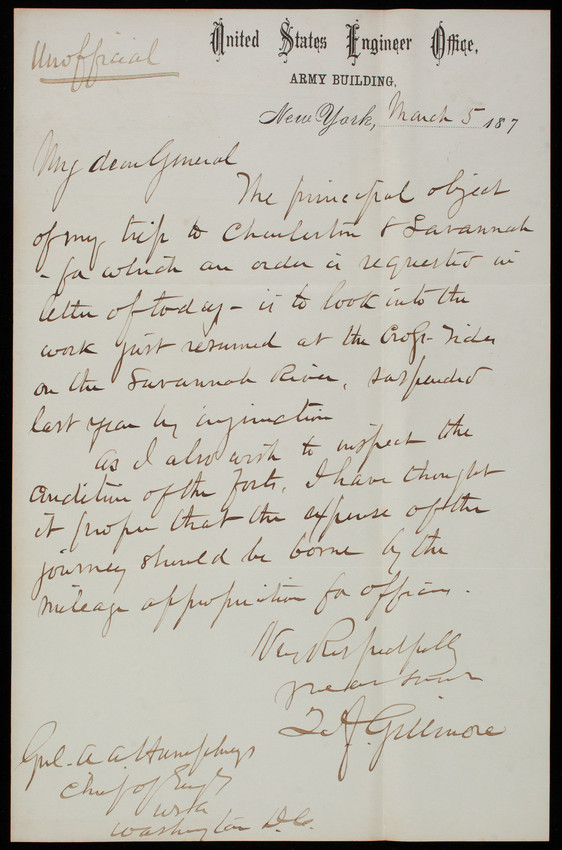 Unofficial
United States Engineer Office,
ARMY BUILDING,
New York, March 5 187
My dear General
The principal object
of my trip to Charleston & Savannah
- for which an order is requested in
letter of today - is to look into the
work just resumed at the Cross-Tides
on the Savannah River, suspended
last year by injunction
As I also wish to inspect the
condition of the forts, I have thought
it proper that the expense of the
journey should be borne by the
mileage appropriation for officers.
Very Respectfully
Q A Gillmore
Genl. A. A. Humphreys
Chief of Engrs
USA
Washington D.C.